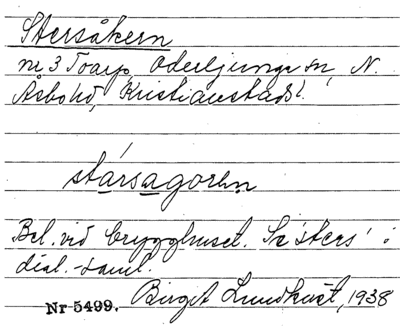 Stersåkern
nr 3 Toarp, Oderljunga sn, N.
Åsbo hd, Kristianstads l.
stársagoren
Bel. vid brygghuset. Se 'sters' i
dial.-saml.
Nr 5499. Birgit Lundkvist, 1938